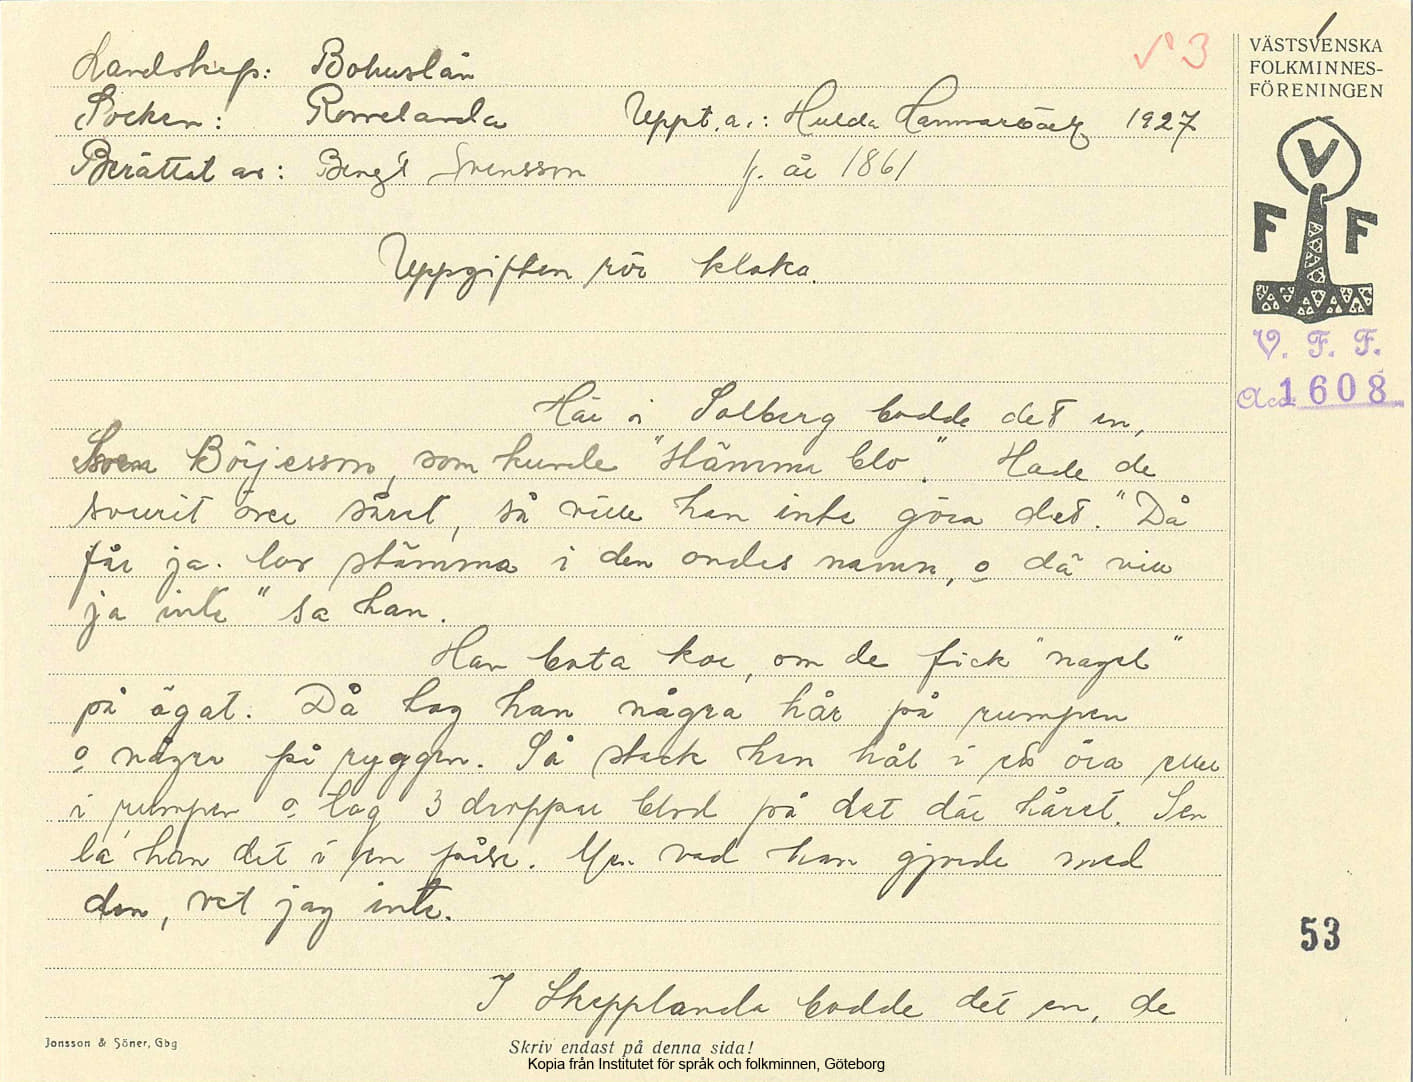 Landskap: Bohuslän
Socken: Romelanda Uppt. a.: Hulda Hammarbäck 1927
Berättat av: Bengt Svensson f. år 1861
V 3
VÄSTSVENSKA
FOLKMINNES-
FÖRENINGEN
V
F F
V. F. F.
Acc 1608
Uppgiften rör kloka.
Här i Solberg bodde det en,
Sven Börjesson, som kunde "stämma blo". Hade de
svurit över såret, så ville han inte göra det. "Då
får ja. lov stämma i den ondes namn, o dä vill
ja inte" sa han.
Han bota kor, om de fick "nagel"
på ögat. Då tog han några hår på rumpen
o några på ryggen. Så stack han hål i ett öra eller
i rumpen o tog 3 droppar blod på det där håret. Sen
la han det i en påse. Men vad han gjorde med
den, vet jag inte.
53
I Skepplanda bodde det en, de
Jonsson & Söner, Gbg
Skriv endast på denna sida!
Kopia från Institutet för språk och folkminnen, Göteborg